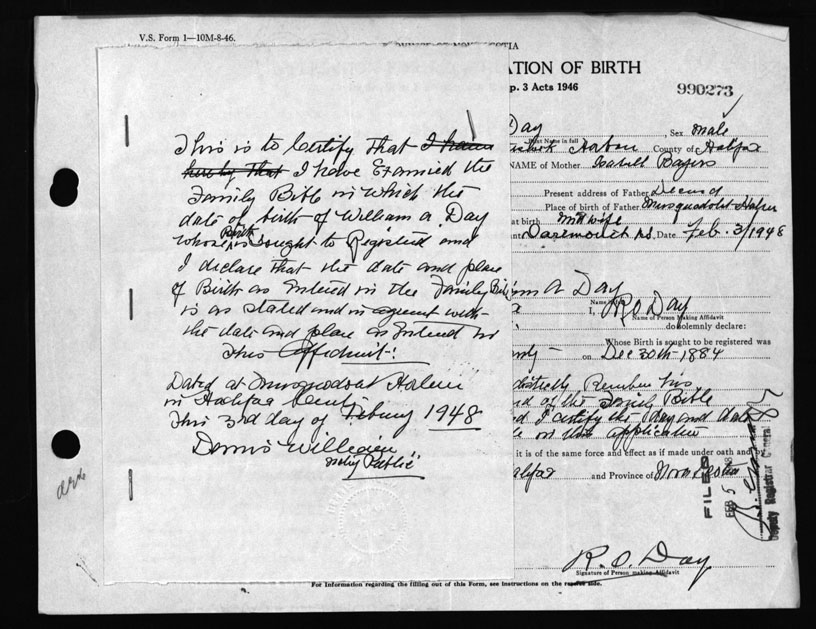 V.S. Form 1—10M-8-46.
ATION OF BIRTH
p. 3 Acts 1946
990273
Day
Sex male
Print Name in full
County of Halifax
NAME of Mother Isabell
Present address of Father
Place of birth of Father
at birth Midwife
N.S. Date Feb. 3/1948
This is to Certify that
hereby that I have Examined the
Family Bible in which the
date of birth of William A. Day
whose Birth is sought to Registerd and
I declare that the date and place
of Birth as Entered in the Family Bible
is as stated and in agreement with
the date and place as Entered in
This Affidavit.
Dated at Harbour
in Halifax County
This 3rd day of Febuary 1948
Dennis Williams
Notry Public
A Day
I, R O Day
Name of Person Making Affidavit
do solemnly declare:
Whose Birth is sought to be registered was
on Dec 30th 1884
distinctly Remember his
of the Family Bible
I certify the Day and date
on this application
it is of the same force and effect as if made under oath and by
Halifax and Province of Nova Scotia
FILED
FEB 5
Deputy Registrar General
R. O. Day
Signature of Person making Affidavit
For Information regarding the filling out of this Form, see instructions on the reverse side.